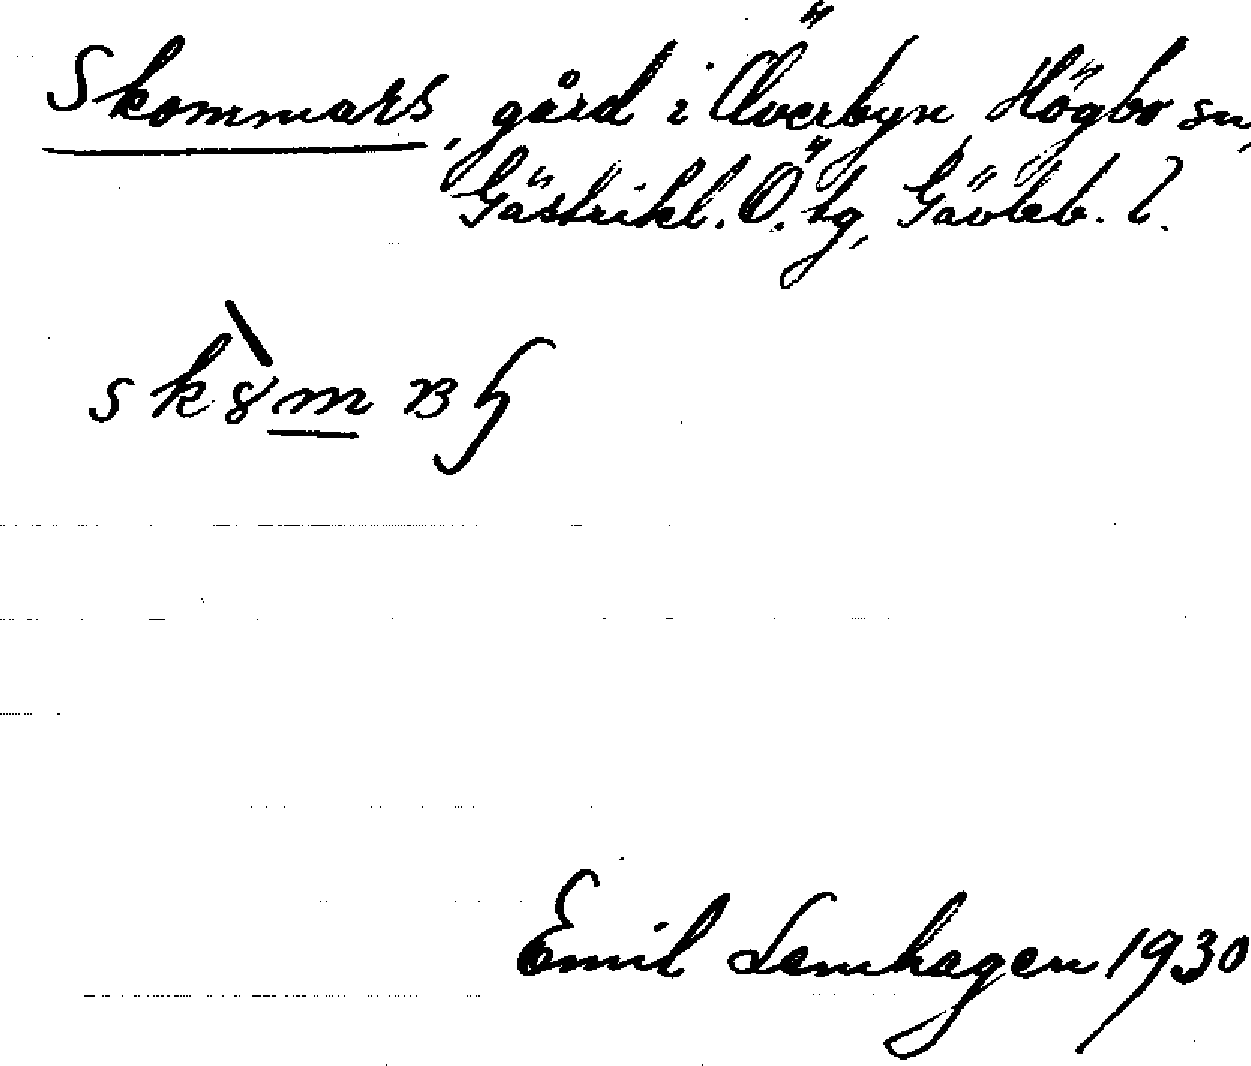 Skommars, gård i Överbyn Högbo sn,
Gästrikl. Ö. tg, Gävleb. l.
Emil Lenhagen 1930